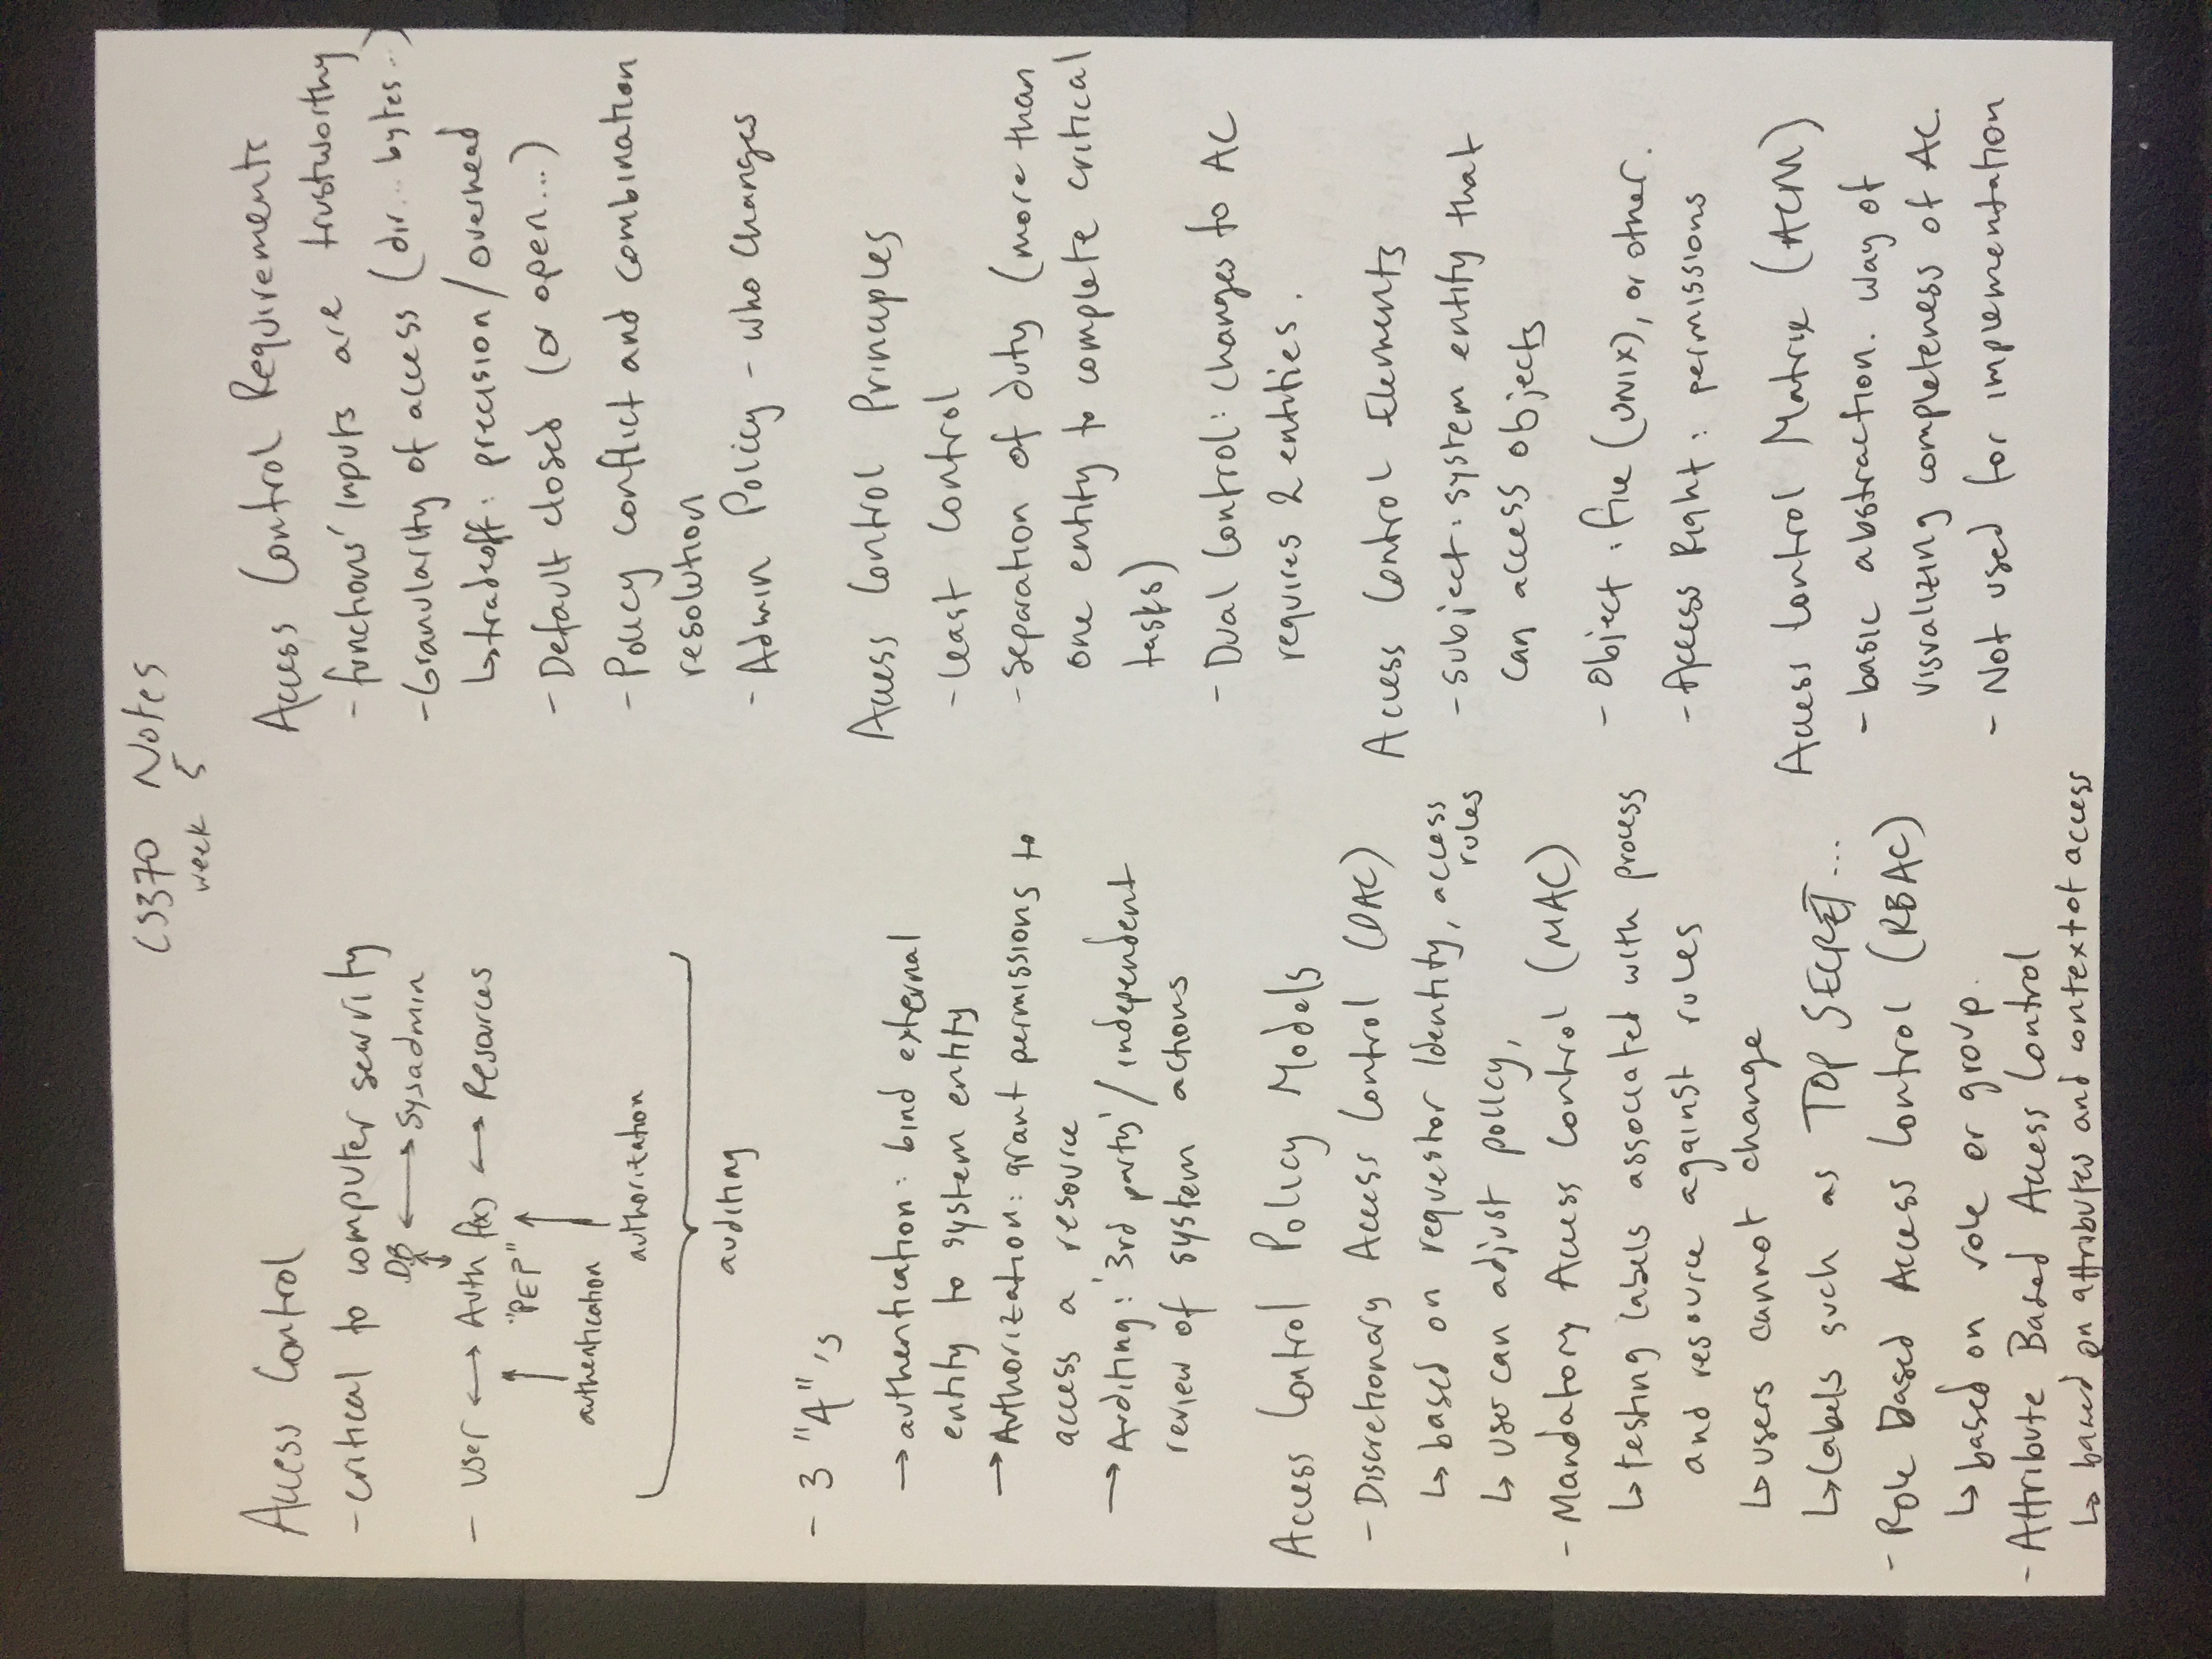 CS370 Notes
week 5
Access Control
- critical to computer security
DB ↔ Sysadmin
↕
- User ↔ Auth f(x) ↔ Resources
"PEP"
authentication
authorization
auditing
- 3 "A"'s
→ authentication: bind external
entity to system entity
→ Authorization: grant permissions to
access a resource
→ Auditing: '3rd party' / independent
review of system actions
Access Control Policy Models
- Discretionary Access Control (DAC)
↳ based on requestor Identity, access
rules
↳ user can adjust policy,
- Mandatory Access Control (MAC)
↳ testing labels associated with process
and resource against rules
↳ users cannot change
↳ Labels such as TOP SECRET...
- Role Based Access Control (RBAC)
↳ based on role or group.
- Attribute Based Access Control
↳ based on attributes and context of access
Access Control Requirements
- functions' inputs are trustworthy
- Granularity of access (dir... bytes...)
↳ tradeoff: precision / overhead
- Default closed (or open...)
- Policy conflict and combination
resolution
- Admin Policy - who changes
Access Control Principles
- Least Control
- Separation of duty (more than
one entity to complete critical
tasks)
- Dual Control: changes to AC
requires 2 entities.
Access Control Elements
- Subject: system entity that
can access objects
- Object: file (UNIX), or other.
- Access Right: permissions
Access Control Matrix (ACM)
- basic abstraction. way of
visualizing completeness of AC.
- Not used for implementation